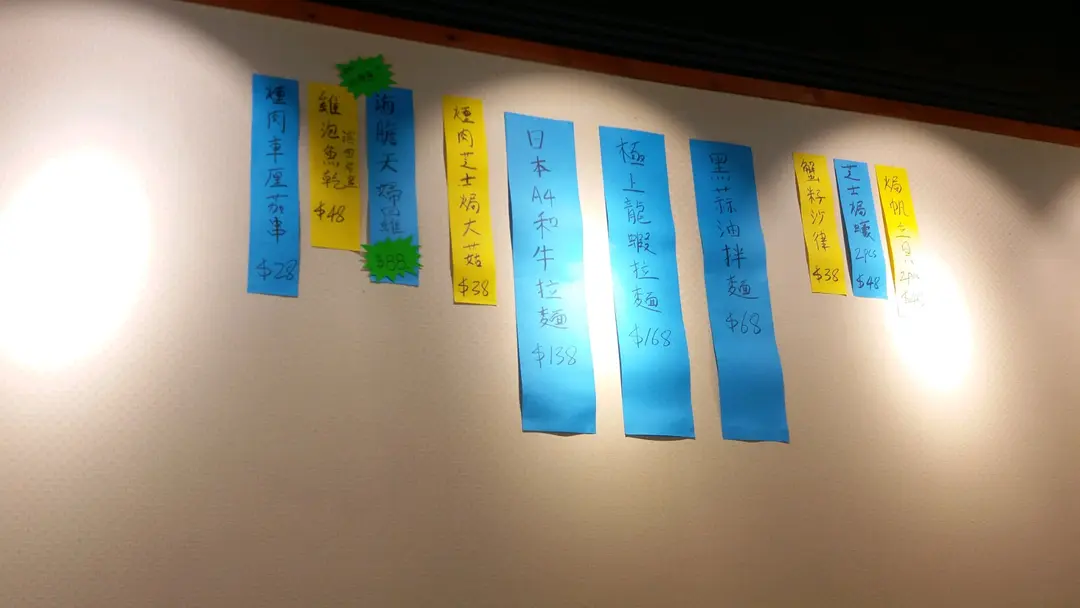 煙肉車厘茄串
$28
魚乾
$48
海膽天婦羅
$88
煙肉芝士焗大菇
$38
日本A4和牛拉麵
$138
極上龍蝦拉麵
$168
黑蒜油拌麵
$68
蟹籽沙律
$38
芝士焗蠔
2pcs
$48
焗帆立貝
2pcs